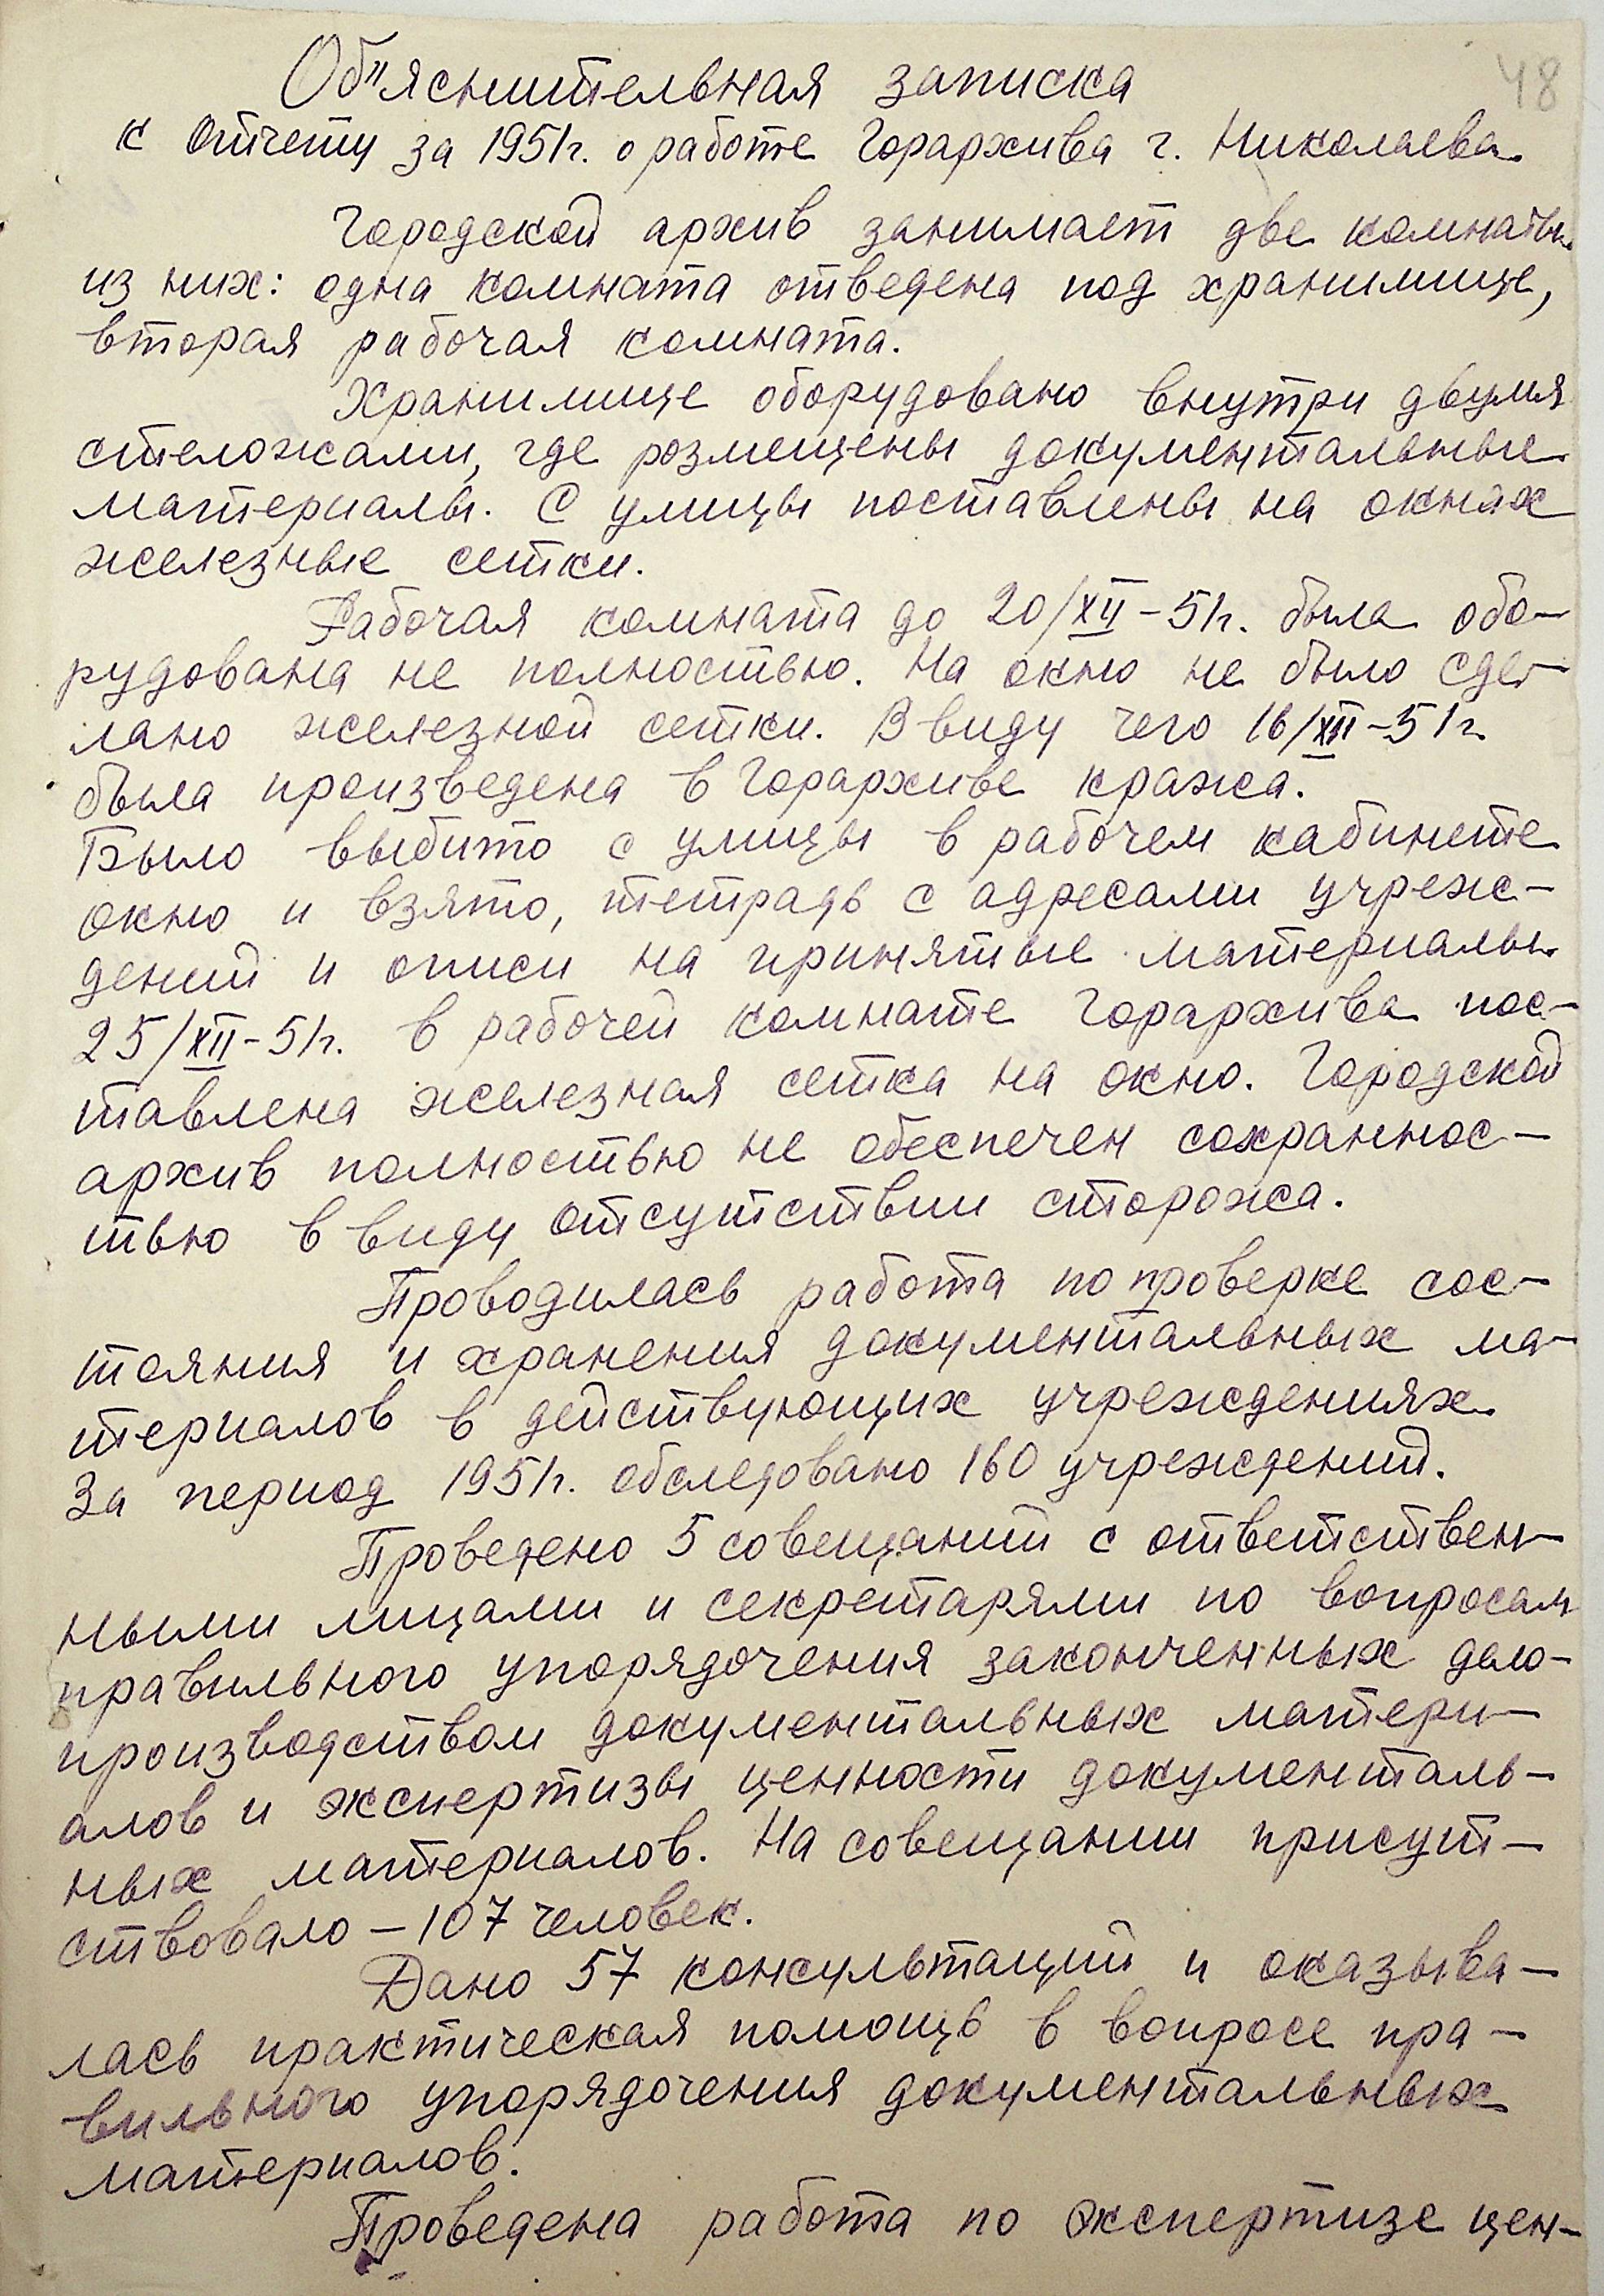 48
Об"яснительная записка
к отчету за 1951г. о работе Горархива г. Николаева.
Городской архив занимает две комнаты
из них: одна комната отведена под хранилище,
вторая рабочая комната.
Хранилище оборудовано внутри двумя
стеложами, где розмещены документальные
материалы. С улицы поставлены на окнах
железные сетки.
Рабочая комната до 20/XII-51г. была обо-
рудована не полностью. На окно не было сде-
лано железной сетки. В виду чего 16/XII-51г.
была произведена в Горархиве кража.
Было выбито с улицы в рабочем кабинете
окно и взято, тетрадь с адресами учреж-
дений и описи на принятые материалы
25/XII-51г. в рабочей комнате Горархива пос-
тавлена железная сетка на окно. Городской
архив полностью не обеспечен сохраннос-
тью в виду отсутствии сторожа.
Проводилась работа по проверке сос-
тояния и хранения документальных ма-
териалов в действующих учреждениях.
За период 1951г. обследовано 160 учреждений.
Проведено 5 совещаний с ответствен-
ными лицами и секретарями по вопросам
правильного упорядочения законченных дело-
производством документальных матери-
алов и экспертизы ценности документаль-
ных материалов. На совещании присут-
ствовало – 107 человек.
Дано 57 консультаций и оказыва-
лась практическая помощь в вопросе пра-
вильного упорядочения документальных
материалов.
Проведена работа по экспертизе цен-